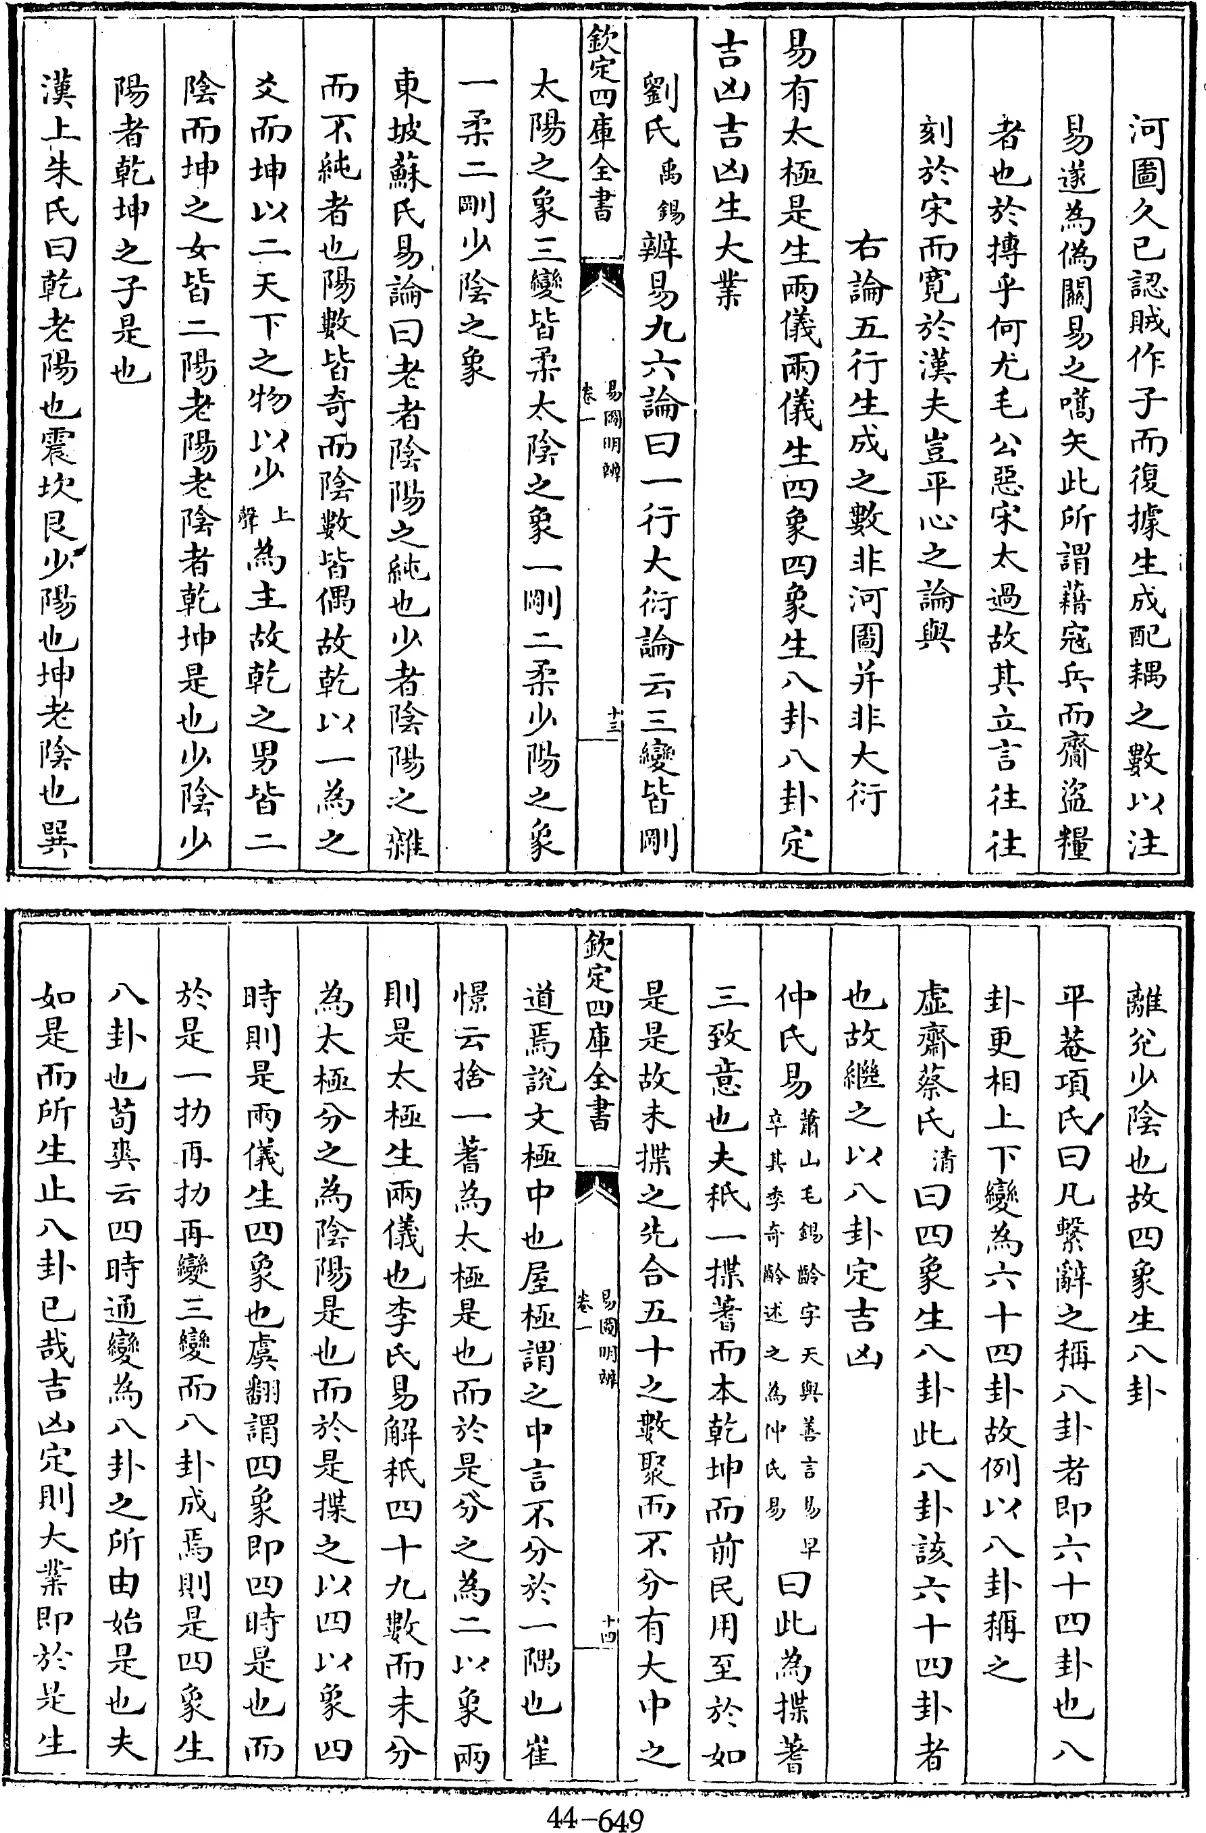 河圖久已認賊作子而復據生成配耦之數以注
易遂為偽關易之嚆矢此所謂藉寇兵而齎盜糧
者也於摶乎何尤毛公惡宋太過故其立言往往
刻於宋而寬於漢夫豈平心之論與
右論五行生成之數非河圖并非大衍
易有太極是生兩儀兩儀生四象四象生八卦八卦定
吉凶吉凶生大業
劉氏禹錫辯易九六論曰一行大衍論云三變皆剛
欽定四庫全書
易圖明辨
卷一
十三
太陽之象三變皆柔太陰之象一剛二柔少陽之象
一柔二剛少陰之象
東坡蘇氏易論曰老者陰陽之純也少者陰陽之雜
而不純者也陽數皆奇而陰數皆偶故乾以一為之
爻而坤以二天下之物以少上聲為主故乾之男皆二
陰而坤之女皆二陽老陽老陰者乾坤是也少陰少
陽者乾坤之子是也
漢上朱氏曰乾老陽也震坎艮少陽也坤老陰也巽
離兊少陰也故四象生八卦
平菴項氏曰凡繫辭之稱八卦者即六十四卦也八
卦更相上下變為六十四卦故例以八卦稱之
虛齋蔡氏清曰四象生八卦此八卦該六十四卦者
也故繼之以八卦定吉凶
仲氏易蕭山毛錫齡字天與善言易早卒其季奇齡述之為仲氏易曰此為揲蓍
三致意也夫秪一揲蓍而本乾坤而前民用至於如
是是故未揲之先合五十之數聚而不分有大中之
欽定四庫全書
易圖明辨
卷一
十四
道焉說文極中也屋極謂之中言不分於一隅也崔
憬云捨一蓍為太極是也而於是分之為二以象兩
則是太極生兩儀也李氏易解秪四十九數而未分
為太極分之為陰陽是也而於是揲之以四以象四
時則是兩儀生四象也虞翻謂四象即四時是也而
於是一扐再扐再變三變而八卦成焉則是四象生
八卦也荀爽云四時通變為八卦之所由始是也夫
如是而所生止八卦已哉吉凶定則大業即於是生
44-649